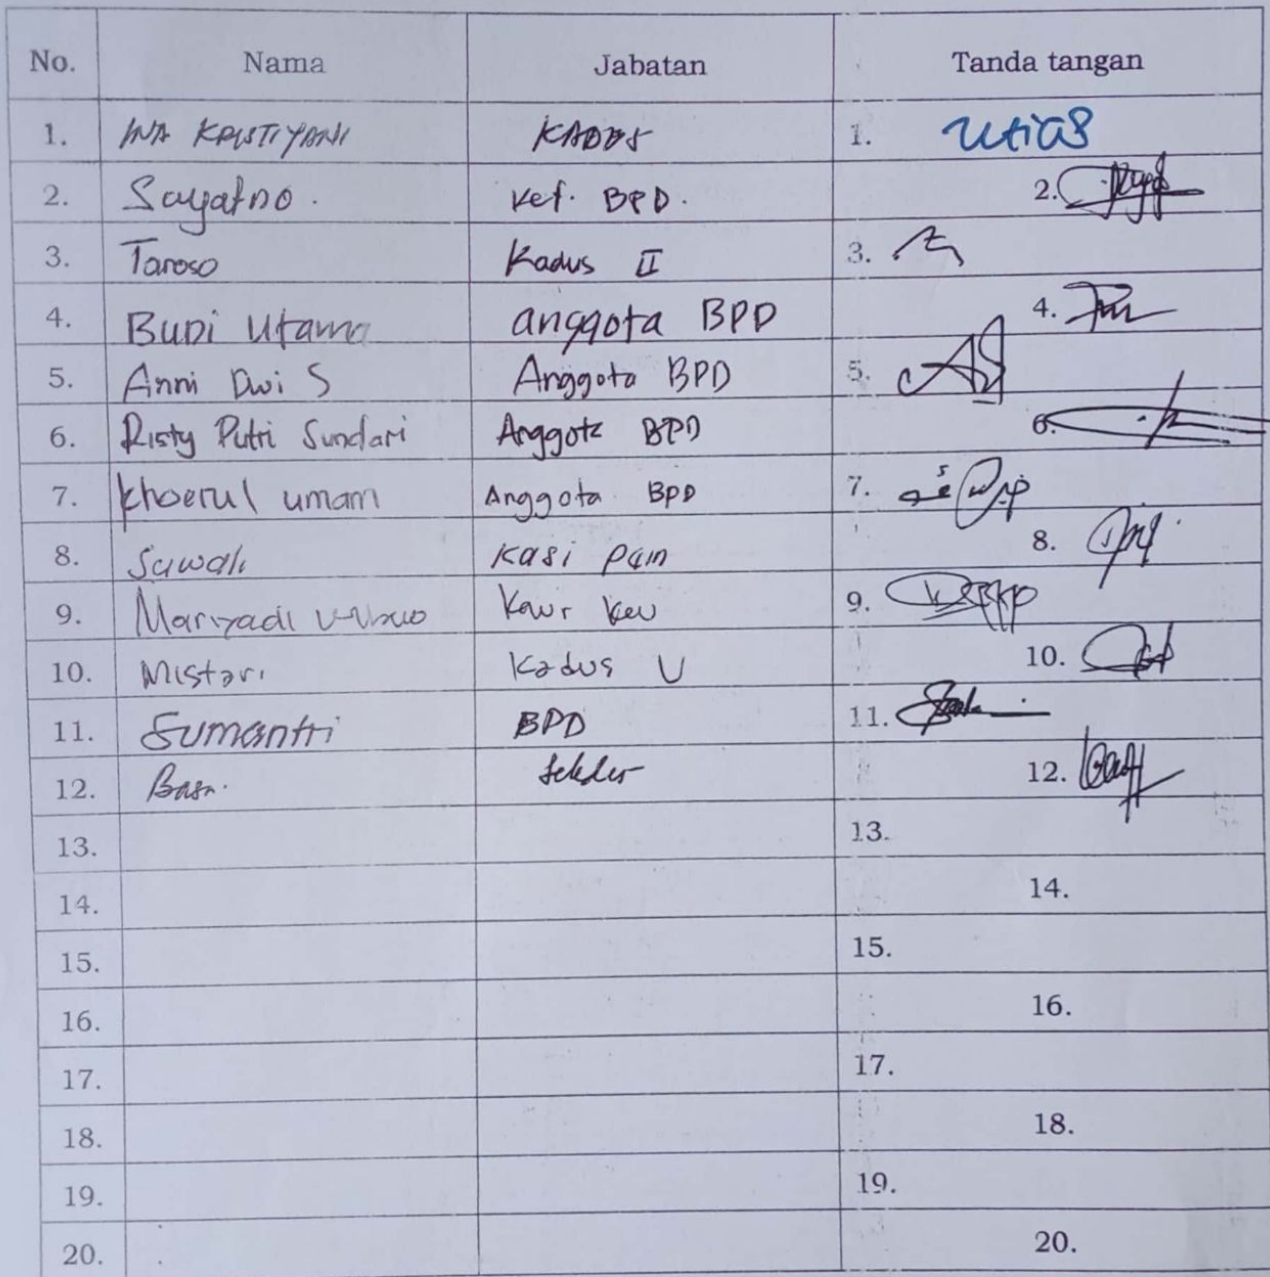 No. Nama Jabatan Tanda tangan
1. INA KRISTIYANI KADUS 1.
2. Sayatno. Ket. BPD. 2.
3. Taroso Kadus II 3.
4. BUDI Utama anggota BPD 4.
5. Anni Dwi S Anggota BPD 5.
6. Risty Putri Sundari Anggota BPD 6.
7. khoerul umam Anggota BPD 7.
8. Sawali Kasi pem 8.
9. Mariyadi Kaur keu 9.
10. Mistari Kadus V 10.
11. Sumantri BPD 11.
12. 12.
13. 13.
14. 14.
15. 15.
16. 16.
17. 17.
18. 18.
19. 19.
20. 20.